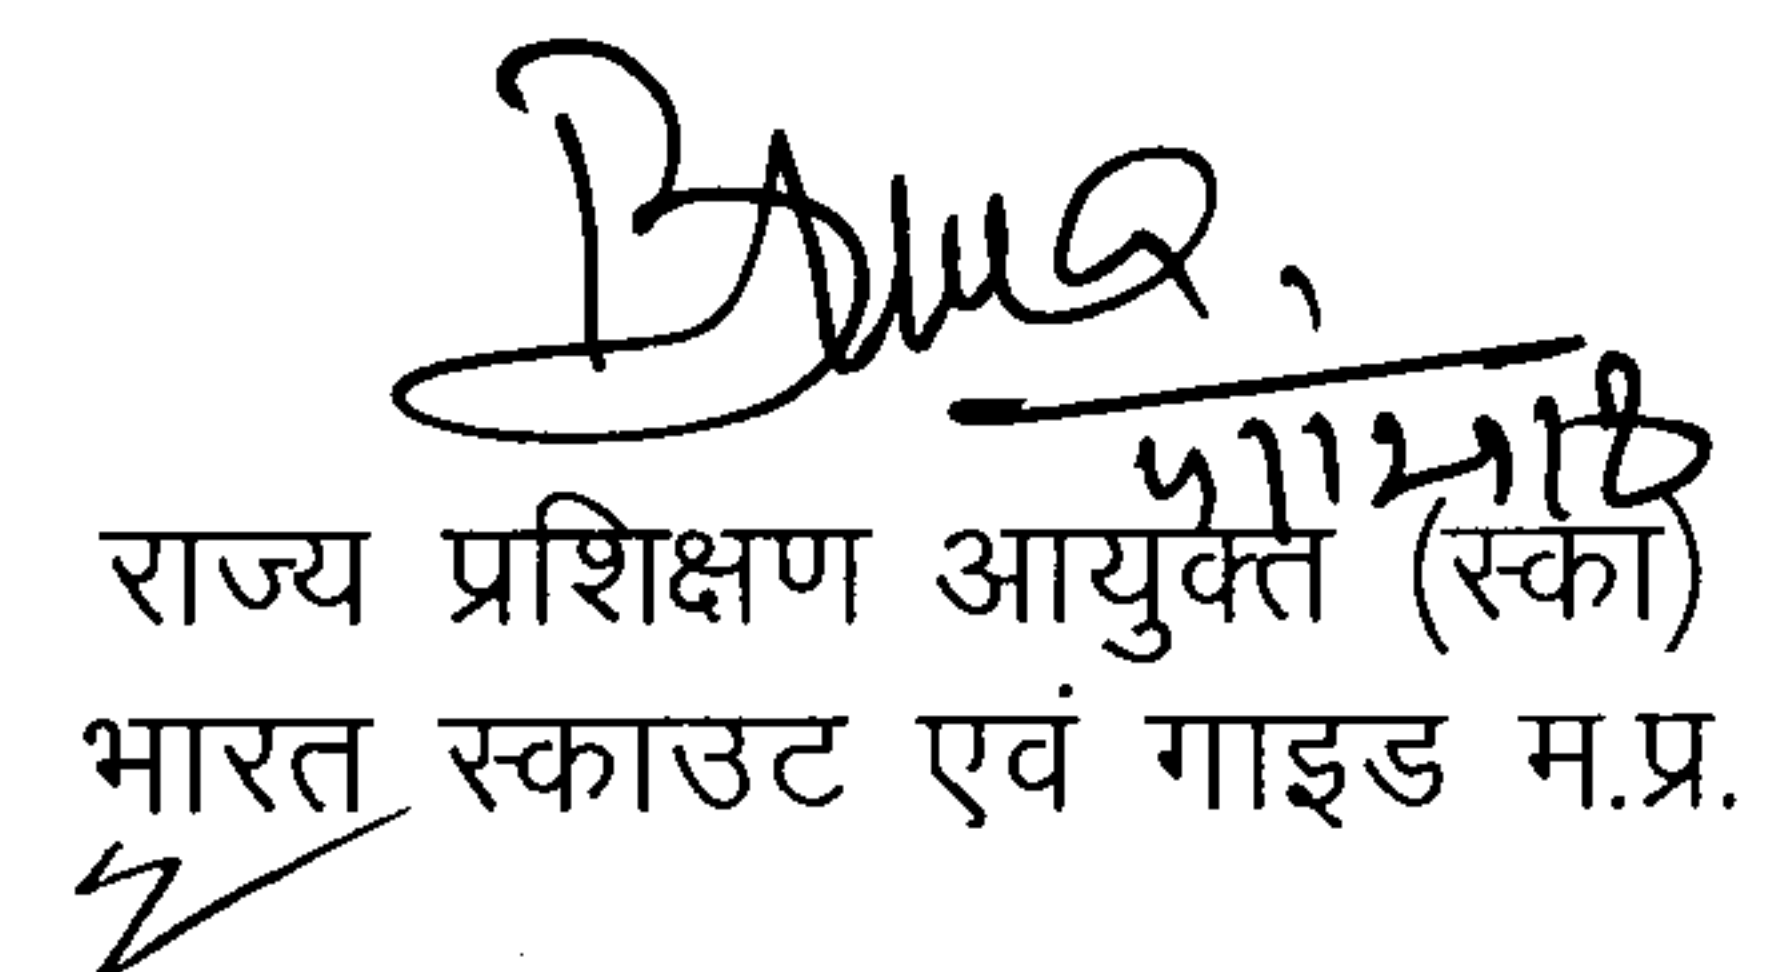 राज्य प्रशिक्षण आयुक्त (स्का)
भारत स्काउट एवं गाइड म.प्र.